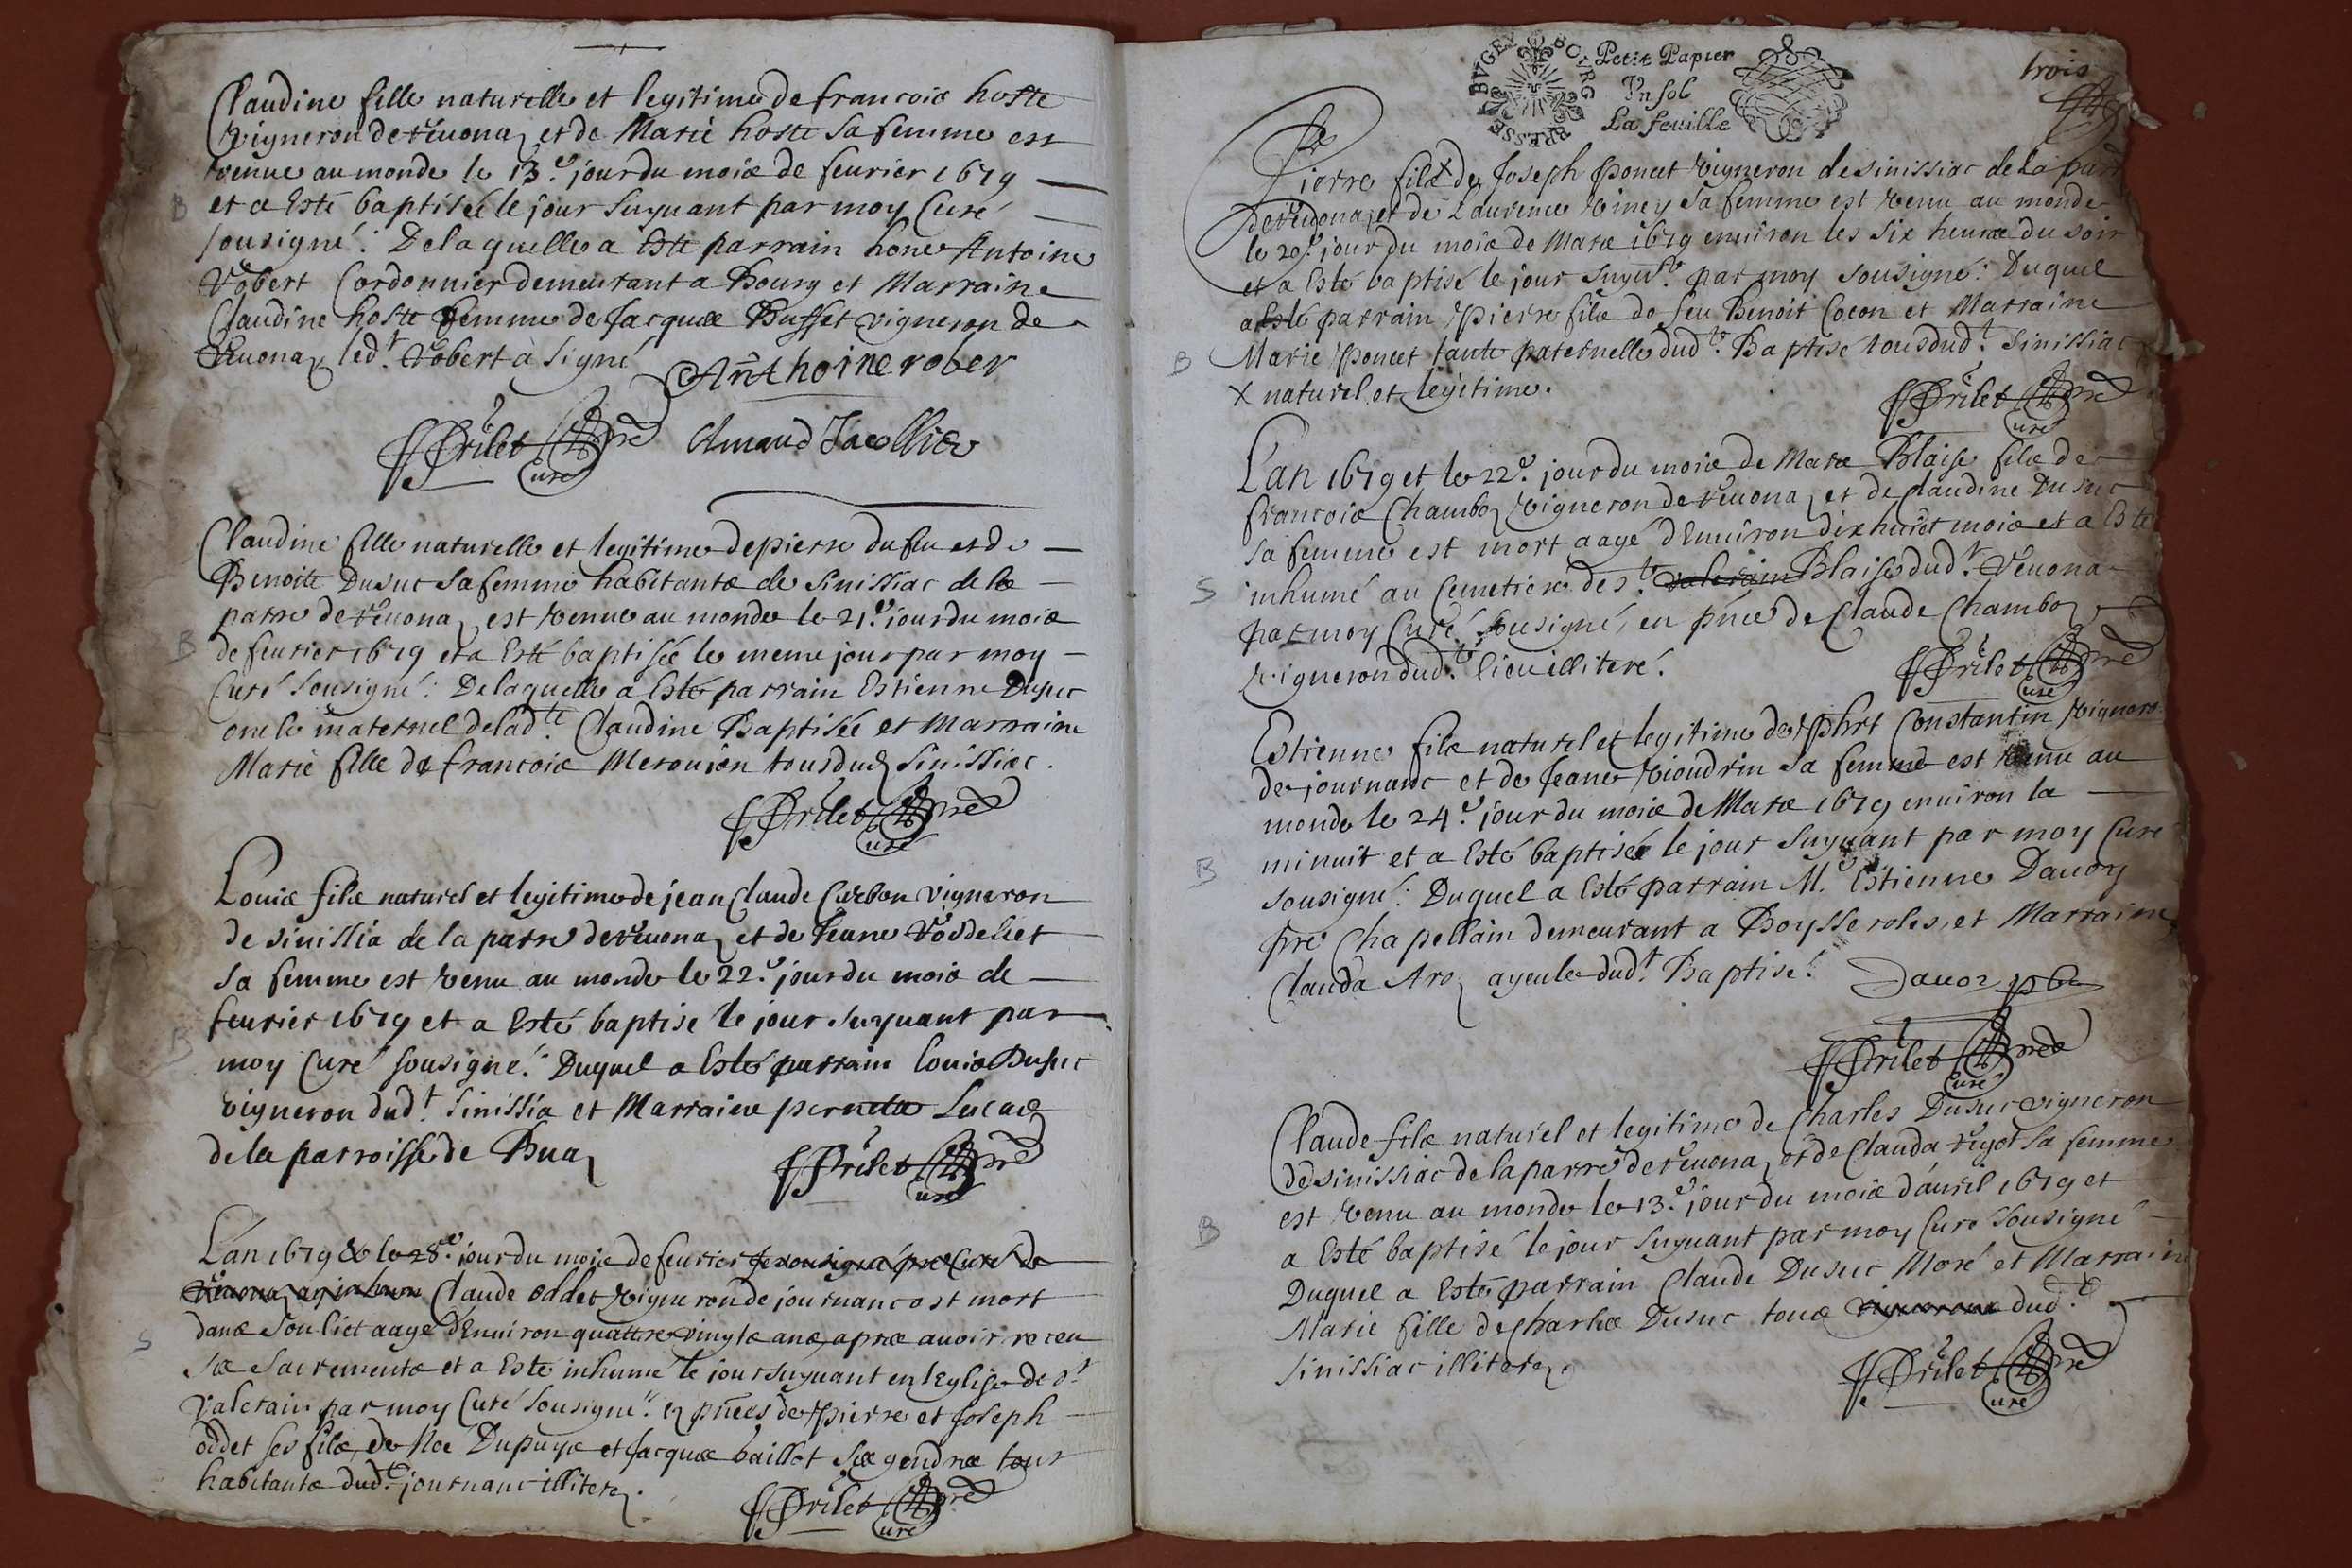 Claudine fille naturelle et legitime de francois hoste
vigneron de reuonaz et de Marie hoste sa femme est
venue au monde le 13.e jour du mois de feurier 1679
B
et a Esté baptisée le jour suyuant par moy Curé
sousigné: De laquelle a esté parrain hone Antoine
Robert Cordonnier demeurant a Bourg et Marraine
Claudine hoste femme de Jacques Buffet vigneron de
Reuonaz led.t robert à signé
Anthoine rober
Prilet pre Curé
Claudine fille naturelle et legitime de pierre du feu et de
Benoite Dusuc sa femme habitants de sinissiac de la
parre de reuonaz est venue au monde le 21.e jour du mois
B
de feurier 1679 et a Esté baptisée le meme jour par moy
Curé sousigné: De laquelle a Esté parrain Estienne Dusuc
oncle maternel delad.te Claudine Baptisée et Marraine
Marie fille de francois Meroujon tousdud sinissiac.
Prilet pre Curé
Louis fils naturel et legitime de jean Claude Carbon vigneron
de sinissia de la parre de reuonaz et de Jeane
sa femme est venu au monde le 22.e jour du mois de
feurier 1679 et a Esté baptisé le jour suyuant par
B
moy Curé sousigné: Duquel a Esté parrain Louis Dusuc
vigneron dud.t sinissia et Marraine pernette
de la parroisse de Buaz
Prilet pre Curé
L'an 1679 & le 28.e jour du mois de feurier Je sousigné pre Curé de
Reuonaz ay inhum Claude oddet vigneron de journanc est mort
S
dans son lict aagé d'Enuiron quattre vingts ans, apres auoir receu
ses sacrements et a Esté inhumé le jour suyuant en l'Eglise de s.t
valerain par moy Curé sousigné: en pñces de pierre et Joseph
oddet ses fils, de Noe Dupuys et Jacques baillot ses gendres tous
habitants dud.t journanc illiterez.
Prilet pre Curé
BRESSE BVGEY BOVRG
Petit Papier
Vn sol
La feuille
trois
Pierre fils x de Joseph poncet vigneron de sinissiac de la parre
de reuonaz et de Laurence viney sa femme est venu au monde
le 20.e jour du mois de Mars 1679 enuiron les six heures du soir
et a Esté baptisé le jour suyu.t par moy sousigné: Duquel
a Esté parrain pierre fils de feu Benoit Cocon et Marraine
B
Marie poncet tante paternelle dud.t Baptisé tousdud.t sinissiac
x naturel et legitime.
Prilet pre Curé
L'an 1679 et le 22.e jour du mois de Mars Blaise fils de
francois Chamboz vigneron de reuonaz et de Claudine Dusuc
sa femme est mort aagé d'Enuiron dix huict mois et a Esté
S
inhumé au Cemetiere de s.t valerain Blaise dud.t Reuona
par moy Curé sousigné, en pñce de Claude Chamboz
vigneron dud.t lieu illiteré.
Prilet pre Curé
Estienne fils naturel et legitime de Constantin vigneron
de journanc et de Jeane vioudrin sa femme est venu au
monde le 24.e jour du mois de Mars 1679 enuiron la
B
minuit et a Esté baptisée le jour suyuant par moy Curé
sousigné: Duquel a Esté parrain M.e Estienne Dauoy
pre Chapellain demeurant a Boysseroles, et Marraine
Clauda Aroz ayeule dud.t Baptisé.
Prilet pre Curé
Claude fils naturel et legitime de Charles Dusuc vigneron
de sinissiac de la parre de reuonaz et de Clauda rigot sa femme
est venu au monde le 13.e jour du mois d'auril 1679 et
B
a Esté baptisé le jour suyuant par moy Curé sousigné
Duquel a Esté parrain Claude Dusuc Moré et Marraine
Marie fille de Charles Dusuc tous vignerons dud.t
sinissiac illiterez.
Prilet pre Curé